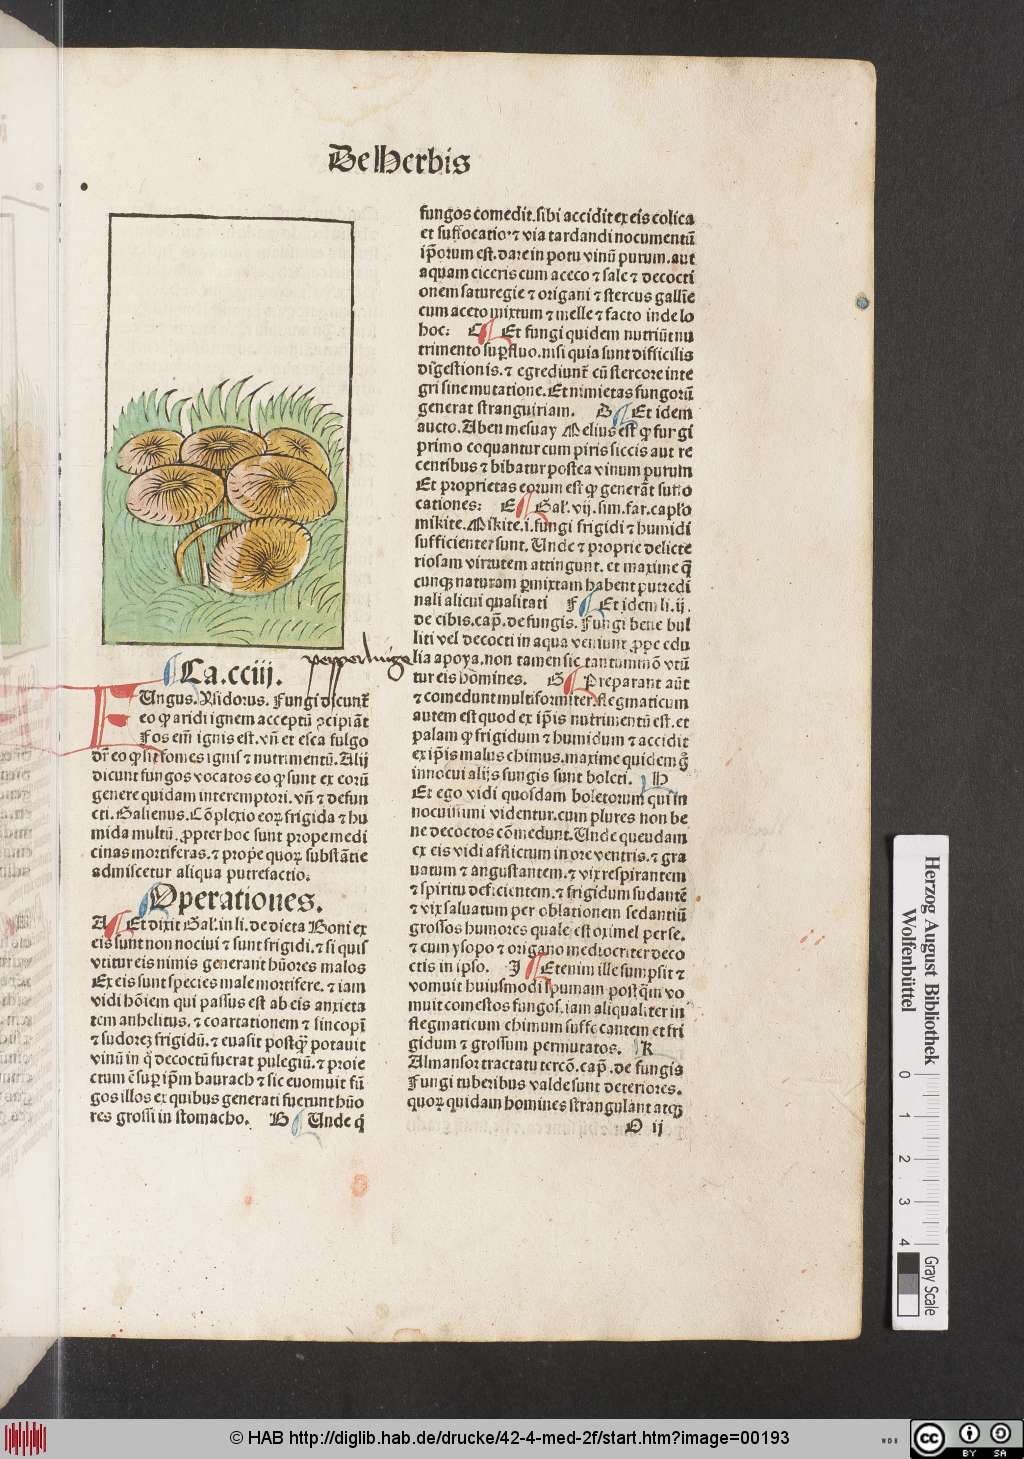 De Herbis
Ca. cciij.
Fungus. Ysidorus. Fungi dicunt᷑
eo ꝙ aridi ignem acceptū ꝯcipiāt
Fos em̄ ignis est. vn̄ et esca fulgo
dr̄ eo ꝙ sit fomes ignis ⁊ nutrimentū. Alij
dicunt fungos vocatos eo ꝙ sunt ex eorū
genere quidam interemptori. vn̄ ⁊ defun
cti. Galienus. Cōplexio eoꝝ frigida ⁊ hu
mida multū. ꝓpter hoc sunt prope medi
cinas mortiferas. ⁊ prope quoꝝ substātie
admiscetur aliqua putrefactio.
Operationes.
A Et dixit Gal'. in li. de dieta Boni ex
eis sunt non nociui ⁊ sunt frigidi. ⁊ si quis
vtitur eis nimis generant hūores malos
Ex eis sunt species male mortifere. ⁊ iam
vidi hōiem qui passus est ab eis anxieta
tem anhelitus. ⁊ coartationem ⁊ sincopī
⁊ sudorē frigidū. ⁊ euasit postꝙ̄ potauit
vinū in q̇ decoctū fuerat pulegiū. ⁊ proie
ctum ē suꝑ ip̄m baurach ⁊ sic euomuit fū
gos illos ex quibus generati fuerunt hūo
res grossi in stomacho. B Unde q̇
fungos comedit. sibi accidit ex eis colica
et suffocatio. ⁊ via tardandi nocumentū
ip̄orum est. dare in potu vinū purum. aut
aquam ciceris cum aceto ⁊ sale ⁊ decocti
onem saturegie ⁊ origani ⁊ stercus gallīe
cum aceto mixtum ⁊ melle ⁊ facto inde lo
hoc: C Et fungi quidem nutriūt nu
trimento suꝑfluo. nisi quia sunt difficilis
digestionis. ⁊ egrediunt᷑ cū stercore inte
gri sine mutatione. Et nimietas fungorū
generat stranguiriam. D Et idem
aucto. Aben mesuay Melius est ꝙ fungi
primo coquantur cum piris siccis aut re
centibus ⁊ bibatur postea vinum purum
Et proprietas eorum est ꝙ generāt suffo
cationes: E Gal'. vij. sim. far. capl'o
mikite. Mikite. i. fungi frigidi ⁊ humidi
sufficienter sunt. Unde ⁊ proprie delicte
riosam virtutem attingunt. et maxime q̄
cunqꝫ naturam ꝑmixtam habent putredi
nali alicui qualitati F Et idem li. ij.
de cibis. cap̄. de fungis. Fungi bene bul
liti vel decocti in aqua veniunt ꝓpe edu
lia apoya. non tamen sic tantummō vtū
tur eis homines. G Preparant aūt
⁊ comedunt multiformiter. flegmaticum
autem est quod ex ip̄is nutrimentū est. et
palam ꝙ frigidum ⁊ humidum ⁊ accidit
ex ip̄is malus chimus. maxime quidem q̄
innocui alijs fungis sunt boleti. H
Et ego vidi quosdam boletorum qui in
nocuissimi videntur. cum plures non be
ne decoctos cōmedunt. Unde quendam
ex eis vidi afflictum in ore ventris. ⁊ gra
uatum ⁊ angustantem. ⁊ vix respirantem
⁊ spiritu deficientem. ⁊ frigidum sudantē
⁊ vix saluatum per oblationem sedantiū
grossos humores quale est oximel per se.
⁊ cum ysopo ⁊ origano mediocriter deco
ctis in ipso. J Etenim ille sumpsit ⁊
vomuit huiusmodi spumam postq̄m vo
muit comestos fungos. iam aliqualiter in
flegmaticum chimum suffocantem et fri
gidum ⁊ grossum permutatos. K
Almansor tractatu tercō. cap̄. de fungis
Fungi tuberibus valde sunt deteriores.
quoꝝ quidam homines strangulant atqꝫ
O ij
pepperlinge
Herzog August Bibliothek
Wolfenbüttel
0 1 2 3 4
Gray Scale
© HAB http://diglib.hab.de/drucke/42-4-med-2f/start.htm?image=00193
WDB
cc BY SA